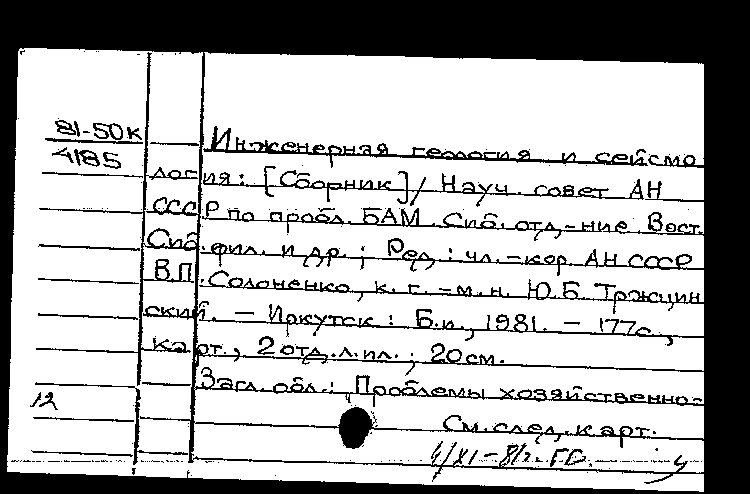 81-50К
4185
Инженерная геология и сейсмо
логия: [Сборник] / Науч. совет АН
СССР по пробл. БАМ. Сиб. отд-ние. Вост.
Сиб. фил. и др.; Ред.: чл.-кор. АН СССР
В.П. Солоненко, к. г.-м. н. Ю.Б. Тржцин
ский. - Иркутск: Б.и., 1981. - 177с.,
карт., 2 отд. л. ил.; 20 см.
Загл. обл.: Проблемы хозяйственно-
12
См. след. карт.
4/XI-81г.